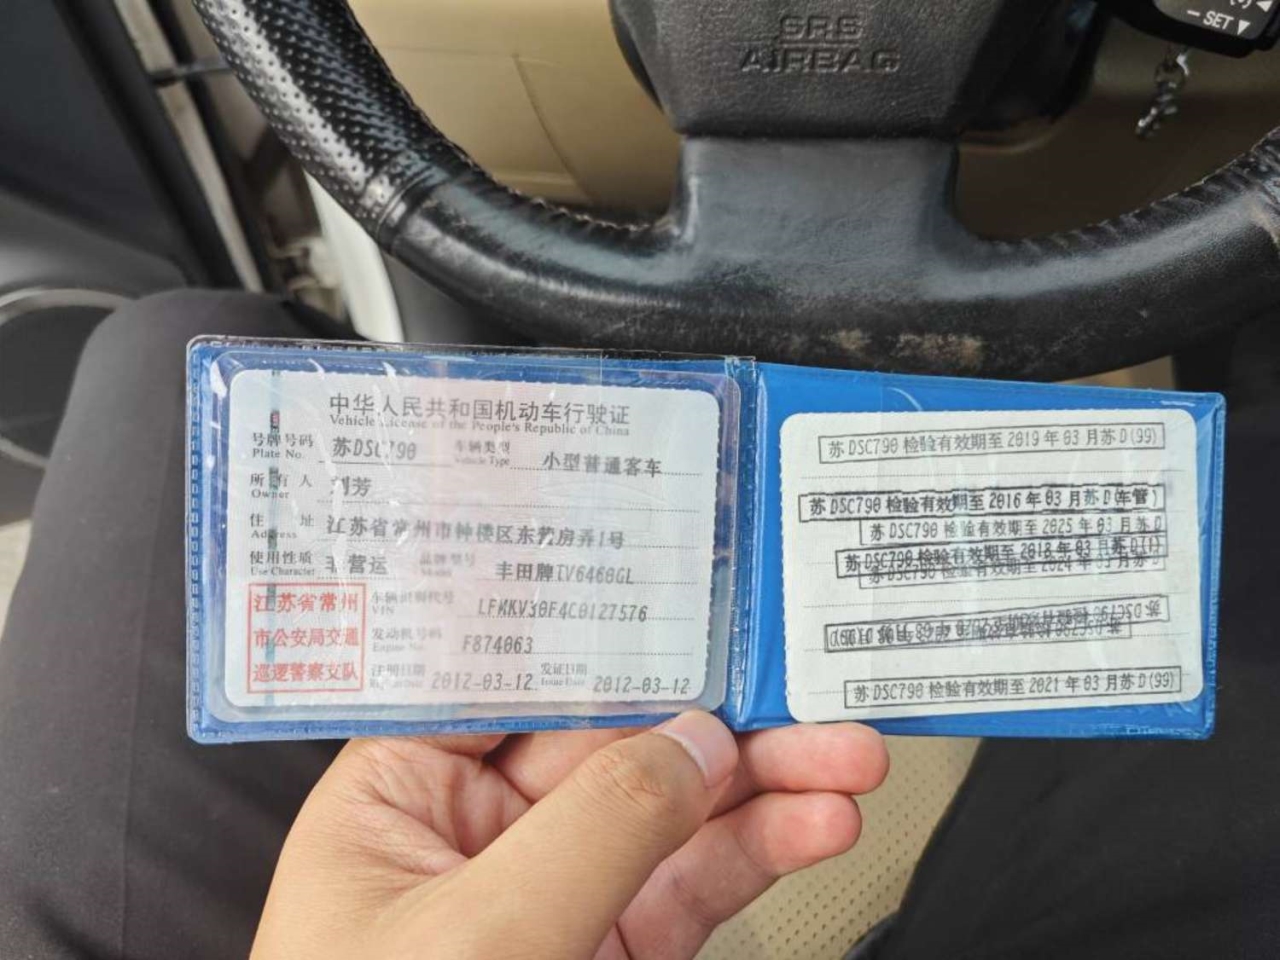 SRS
AIRBAG
— SET ▼
中华人民共和国机动车行驶证
Vehicle License of the People's Republic of China
号牌号码 苏DSC790 车辆类型 小型普通客车
Plate No. Vehicle Type
所有人 刘芳
Owner
住址 江苏省常州市钟楼区东营房弄1号
Address
使用性质 非营运 品牌型号 丰田牌TV6460GL
Use Character Model
江苏省常州
市公安局交通
巡逻警察支队
车辆识别代号 LFMKV30F4C0127576
VIN
发动机号码 F874063
Engine No.
注册日期 2012-03-12 发证日期 2012-03-12
Register Date Issue Date
苏DSC790检验有效期至2019年03月苏D(99)
苏DSC790检验有效期至2016年03月苏D(车管)
苏DSC790检验有效期至2025年03月苏D
苏DSC790检验有效期至2018年03月苏D(1)
苏DSC790检验有效期至2024年03月苏D
苏DSC790检验有效期至2021年03月苏D(99)